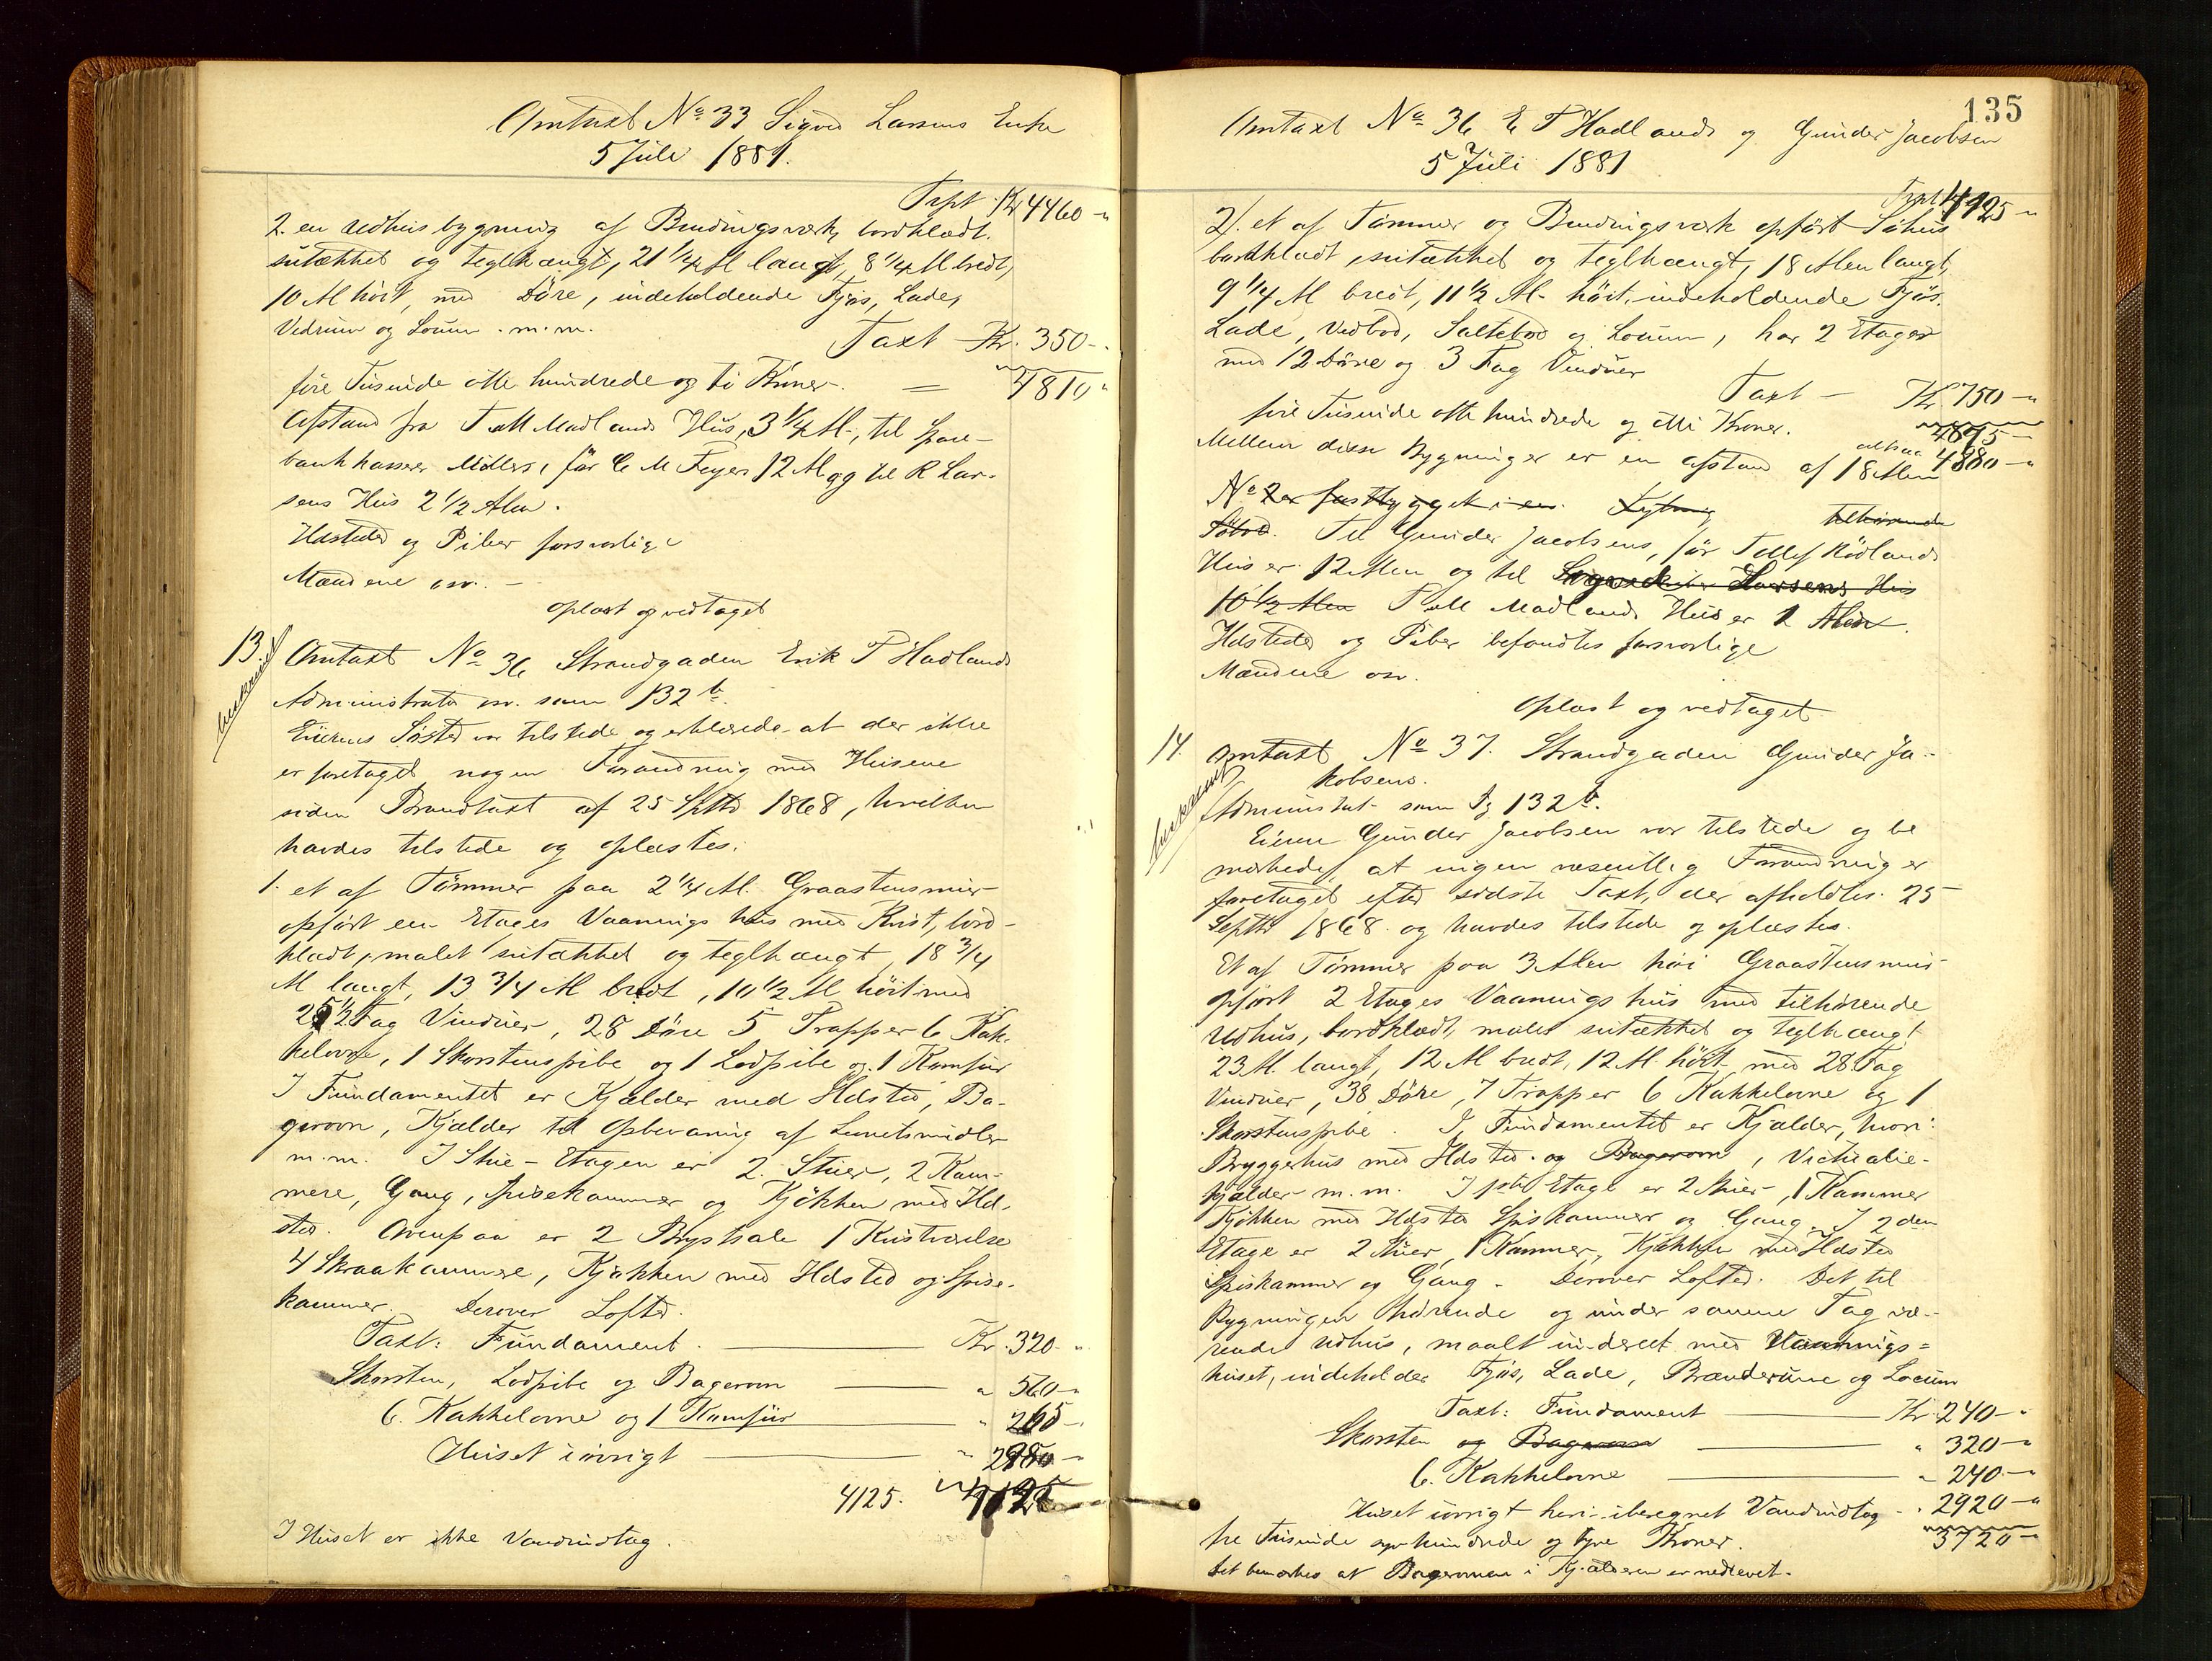 Omtaxt No 33 Sigvd Larsens Enke
5 Juli 1881.
Trpt Kr 4460 -"
2. en Udhusbygning af Bindingsværk, bordklædt.
sutækket og teglhængt, 21 1/4 Al langt, 8 1/4 Al bredt,
10 Al höit, med Döre, indeholdende Fjös, Lade,
Vedrum og Locum. m.m.
Taxt Kr. 350-.
fire Tusinde otte hundrede og ti Kroner. = 4810 "
Afstand fra T M Madlands Hus, 3 1/4 Al, til Spare-
bankkasserer Midlers, för C M Feyer 12 Al og til R Lar-
sens Hus 2 1/2 Alen.
Ildsteder og Piber forsvarlige
Mændene osv. -
oplæst og vedtaget
13. Omtaxt No 36 Strandgaden Erik T Hadlands
Administrator osv. som 132 b.
Eierens Söster var tilstede og erklærede at der ikke
er foretaget nogen Forandring med Husene
siden Brandtaxt af 25 Septbr 1868, hvilken
havdes tilstede og oplæstes.
1. et af Tömmer paa 2 1/4 Al. Graastensmur
opfört een Etages Vaaningshus med Kvist, bord-
klædt, malet sutækket og teglhængt, 18 3/4
Al langt, 13 3/4 Al bredt, 10 1/2 Al höit med
25 1/2 Fag Vinduer, 28 Döre 5 Trapper 6 Kak-
kelovne, 1 Skorstenspibe og 1 Lodpibe og 1 Komfur
I Fundamentet er Kjælder med Ildsted, Ba-
gerovn, Kjælder til Opbevaring af Levnetsmidler
m.m. I Stue-Etagen er 2 Stuer, 2 Kam-
mere, Gang, Spisekammer og Kjökken med Ild-
sted. Ovenpaa er 2 Brystsale 1 Kvistværelse
4 Skraakammere, Kjökken med Ildsted og Spise-
kammer. Derover Lofted.
Taxt: Fundament. Kr. 320 "
Skorsten, Lodpibe og Bagerovn " 560 -"
6. Kakkelovne og 1 Komfur " 265 -
Huset iövrigt " 2980 -
4125. 4125
I Huset er ikke Vandindtag.
135
Omtaxt No 36 E T Hadlands og Gunder Jacobsen
5 Juli 1881
Trpt 4125 -"
2). et af Tömmer og Bindingsværk opfört Söhus
bordklædt, sutækket og teglhængt, 18 Alen langt,
9 1/4 Al bredt, 11 1/2 Al- höit, indeholdende Fjös.
Lade, Vedbod, Saltebod og Locum, har 2 Etager
med 12 Döre og 3 Fag Vinduer
Taxt - Kr. 750 -"
fire Tusinde otte hundrede og otti Kroner. 4875 -
altsaa 4880 -"
Mellem disse Bygninger er en afstand af 18 Alen
No 2 er fastbygget i en tilhörende
Söbod. Til Gunder Jacobsens, för Tollef Rödlands
Hus er 12 Alen og til Sigved Larsens Hus
10 1/2 Alen T M Madlands Hus er 1 Alen.
Ildsteder og Piber befandtes forsvarlige
Mændene osv.
Oplæst og vedtaget
14. Omtaxt No 37. Strandgaden Gunder Ja-
kobsens.
Administrat- som Pg 132 b.
Eieren Gunder Jacobsen var tilstede og be
mærkede, at ingen væsentlig Forandring er
foretaget efter sidste Taxt, der afholdtes 25
Septbr 1868. og havdes tilstede og oplæstes.
Et af Tömmer paa 3 Alen höi Graastensmur
opfört 2 Etages Vaaningshus med tilhörende
Udhus, bordklædt, malet sutækket og teglhængt
23 Al. langt, 12 Al bredt, 12 Al. höit, med 28 Fag
Vinduer, 38 Döre, 7 Trapper 6 Kakkelovne og 1
Skorstenspibe. I Fundamentet er Kjælder, hvori
Bryggerhus med Ildsted og Bagerovn, Victualie-
kjælder m.m. I 1ste Etage er 2 Stuer, 1 Kammer
Kjökken med Ildsted Spiskammer og Gang. I 2den
Etage er 2 Stuer, 1 Kammer, Kjökken med Ildsted
Spiskammer og Gang - Derover Lofted. Det til
Bygningen hörende og under samme Tag væ-
rende Udhus, maalt inderect med Vaanings=
huset, indeholder Fjös, Lade, Brænderum og Locum
Taxt: Fundament Kr 240 -"
Skorsten og Bagerovn " 320 -"
6. Kakkelovne " 240 -"
Huset iövrigt heri iberegnet Vandindtag " 2920 -"
tre Tusinde syvhundrede og tyve Kroner. 3720 -"
Det bemærkes at Bagerovnen i Kjælderen er nedlevet.